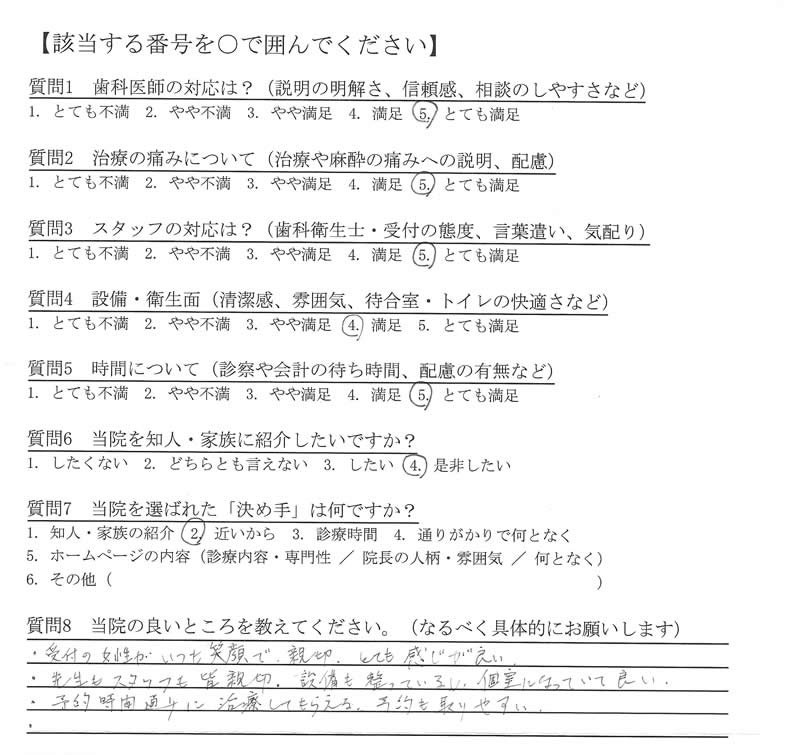 【該当する番号を○で囲んでください】
質問1 歯科医師の対応は？（説明の明解さ、信頼感、相談のしやすさなど）
1. とても不満 2. やや不満 3. やや満足 4. 満足 5. とても満足
質問2 治療の痛みについて（治療や麻酔の痛みへの説明、配慮）
1. とても不満 2. やや不満 3. やや満足 4. 満足 5. とても満足
質問3 スタッフの対応は？（歯科衛生士・受付の態度、言葉遣い、気配り）
1. とても不満 2. やや不満 3. やや満足 4. 満足 5. とても満足
質問4 設備・衛生面（清潔感、雰囲気、待合室・トイレの快適さなど）
1. とても不満 2. やや不満 3. やや満足 4. 満足 5. とても満足
質問5 時間について（診察や会計の待ち時間、配慮の有無など）
1. とても不満 2. やや不満 3. やや満足 4. 満足 5. とても満足
質問6 当院を知人・家族に紹介したいですか？
1. したくない 2. どちらとも言えない 3. したい 4. 是非したい
質問7 当院を選ばれた「決め手」は何ですか？
1. 知人・家族の紹介 2. 近いから 3. 診療時間 4. 通りがかりで何となく
5. ホームページの内容（診療内容・専門性 ／ 院長の人柄・雰囲気 ／ 何となく）
6. その他（ ）
質問8 当院の良いところを教えてください。（なるべく具体的にお願いします）
・受付の女性がいつも笑顔で、親切、とても感じが良い。
・先生もスタッフも皆親切。設備も整っているし、個室になっていて良い。
・予約時間通りに治療してもらえる。予約も取りやすい。
・